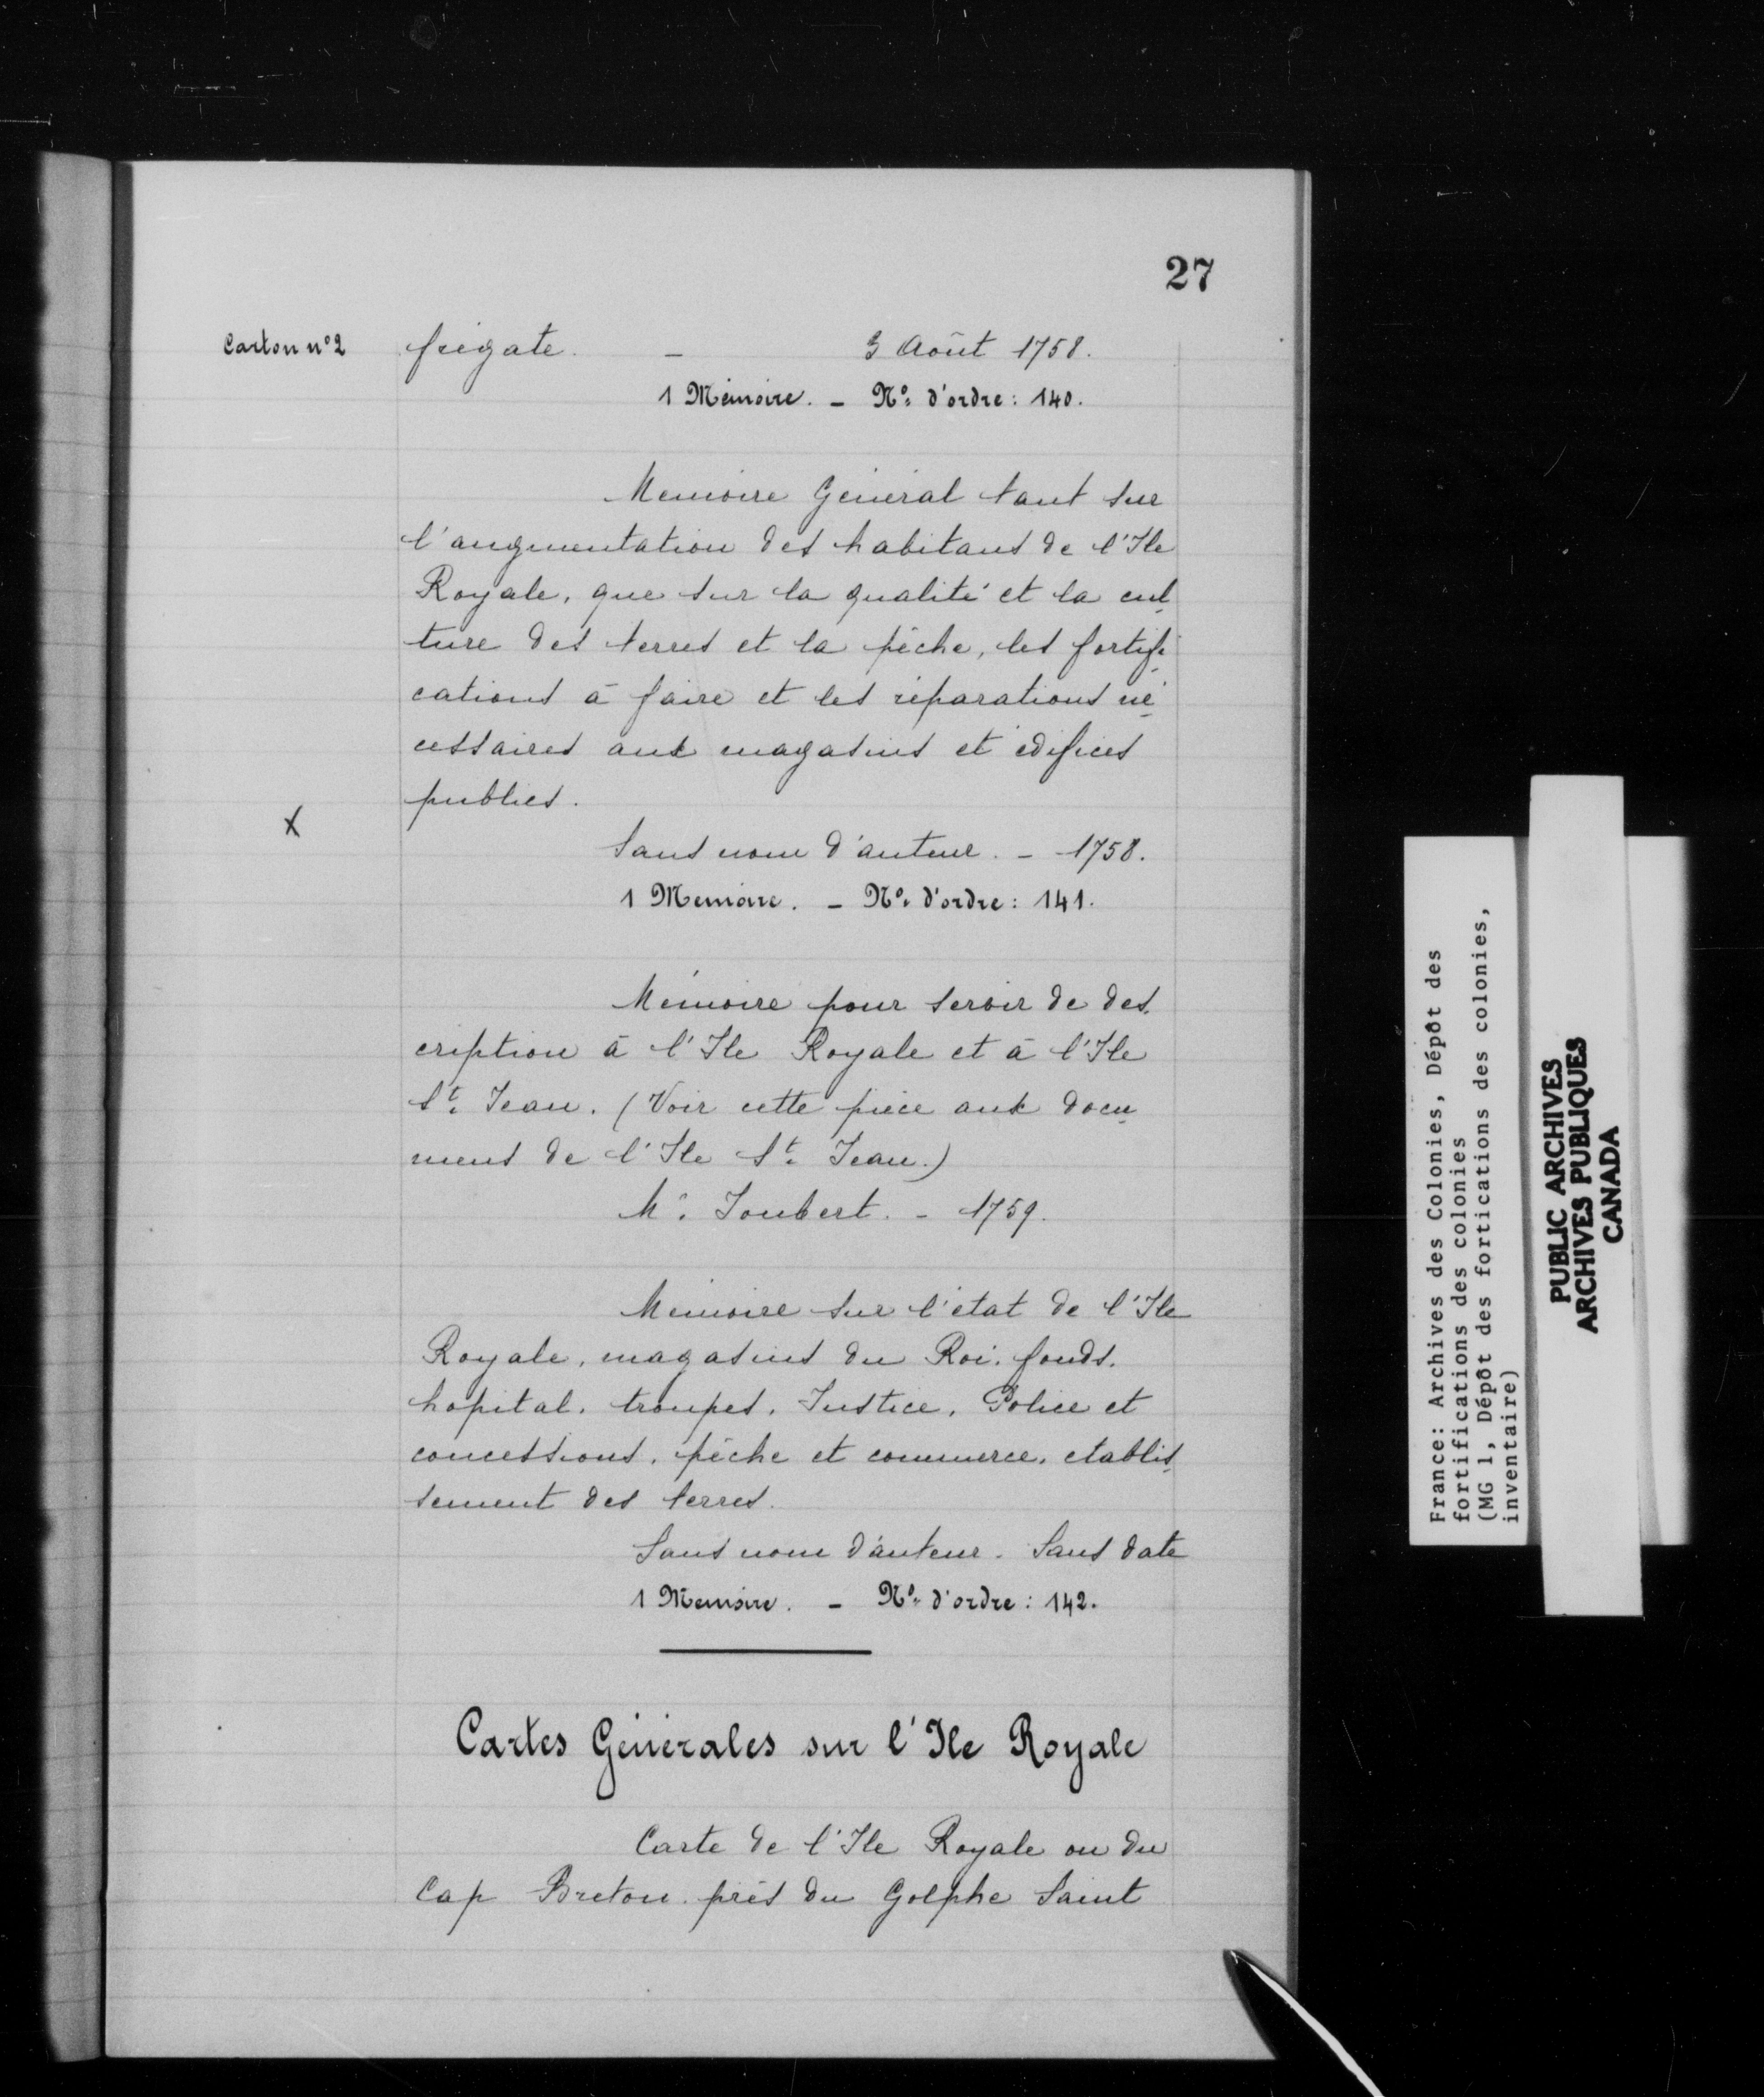 27
Carton nº 2
frégate. — 3 Août 1758.
1 Mémoire. — Nº d'ordre : 140.
Memoire Général tant sur
l'augmentation des habitans de l'Ile
Royale, que sur la qualité et la cul-
ture des terres et la pêche, les fortifi-
cations à faire et les réparations né-
cessaires aux magasins et édifices
publics.
X
Sans nom d'auteur. — 1758.
1 Memoire. — Nº d'ordre : 141.
Mémoire pour servir de des-
cription à l'Ile Royale et à l'Ile
St. Jean. (Voir cette pièce aux docu-
mens de l'Ile St. Jean.)
Mr. Joubert. — 1759.
Mémoire sur l'état de l'Ile
Royale, magasins du Roi, fonds,
hopital, troupes, Justice, Police et
concessions, pêche et commerce, etablis-
sement des terres.
Sans nom d'auteur. Sans date
1 Memoire. — Nº d'ordre : 142.
Cartes Générales sur l'Ile Royale
Carte de l'Ile Royale ou du
Cap Breton près du Golphe Saint
France: Archives des Colonies, Dépôt des
fortifications des colonies
(MG 1, Dépôt des fortications des colonies,
inventaire)
PUBLIC ARCHIVES
ARCHIVES PUBLIQUES
CANADA